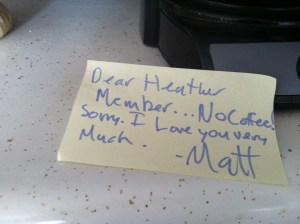 Dear Heather
Member... No Coffee!
Sorry. I Love you very
Much.
-Matt